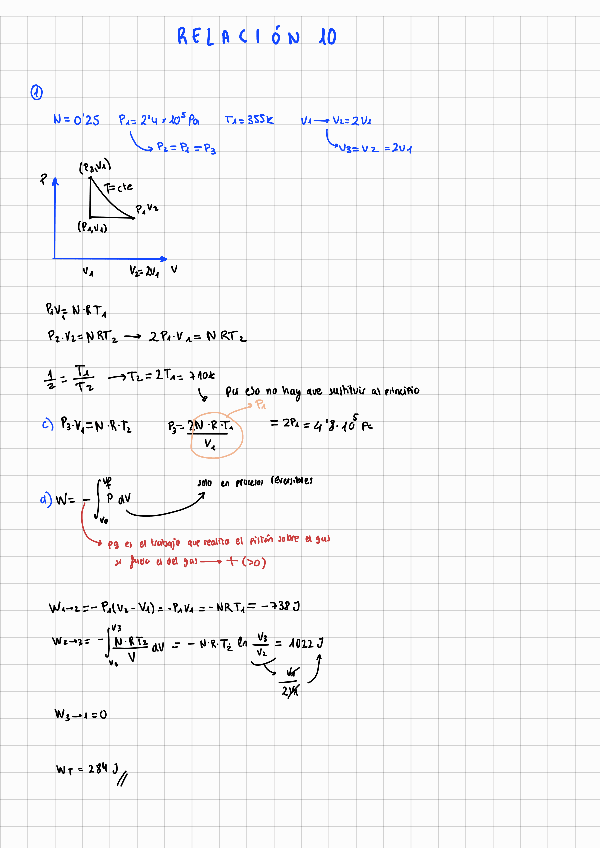 RELACIÓN 10
①
N = 0'25 P₁ = 2'4 × 10⁵ Pa T₁ = 355K V₁ → V₂ = 2V₁
P₂ = P₁ = P₃ V₃ = V₂ = 2V₁
P (P₃,V₁)
T=cte
P₁ V₂
(P₁,V₁)
V₁ V₂=2V₁ V
P₁V₁ = N·R T₁
P₂·V₂ = N R T₂ → 2P₁·V₁ = N R T₂
1/2 = T₁/T₂ → T₂ = 2T₁ = 710K
Por eso no hay que sustituir al principio
P₁
c) P₃·V₁ = N·R·T₂ P₃ = 2N·R·T₁/V₁ = 2P₁ = 4'8·10⁵ Pa
solo en procesos reversibles
d) W = - ∫ P dV
pq es el trabajo que realiza el pistón sobre el gas
si fuera el del gas → + (>0)
W₁→₂ = - P₁(V₂ - V₁) = -P₁V₁ = - N R T₁ = -738 J
W₂→₃ = - ∫ N·R T₂/V dV = - N·R·T₂ ln V₃/V₂ = 1022 J
V₁/2V₁
W₃→₁ = 0
W_T = 284 J //